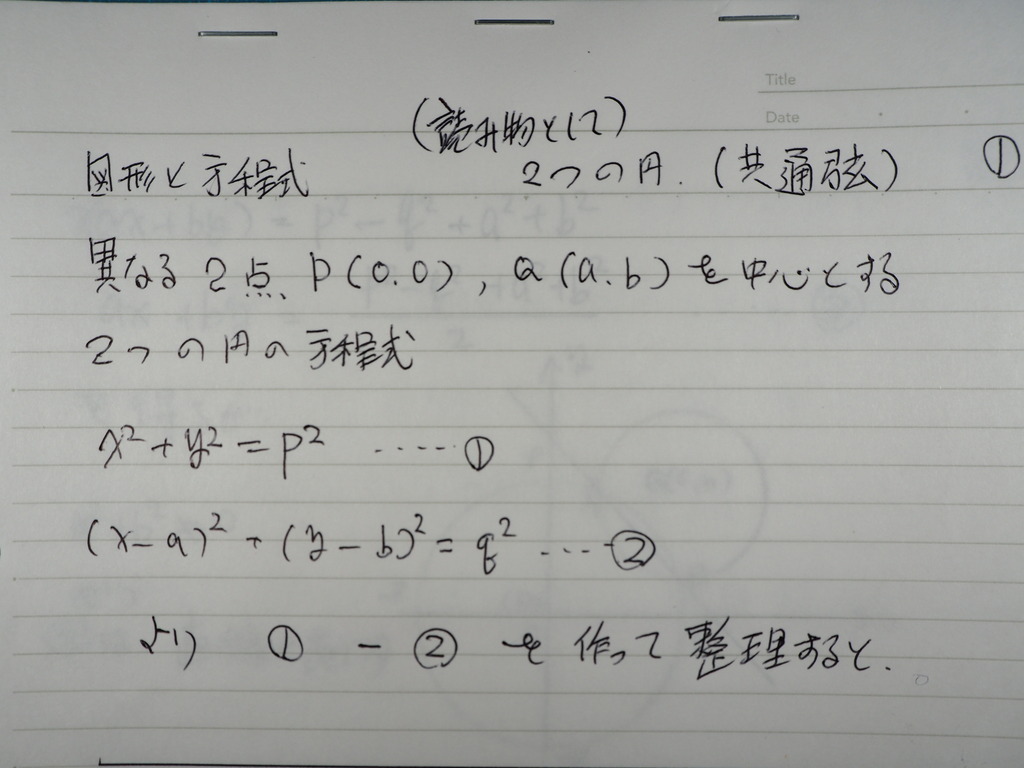 Title
Date
(読み物として)
図形と方程式 2つの円. (共通弦) ①
異なる2点、P(0.0), Q(a.b)を中心とする
2つの円の方程式
x²+y²=p² ····· ①
(x-a)²+(y-b)²=q² ····②
より ① - ② を作って整理すると.